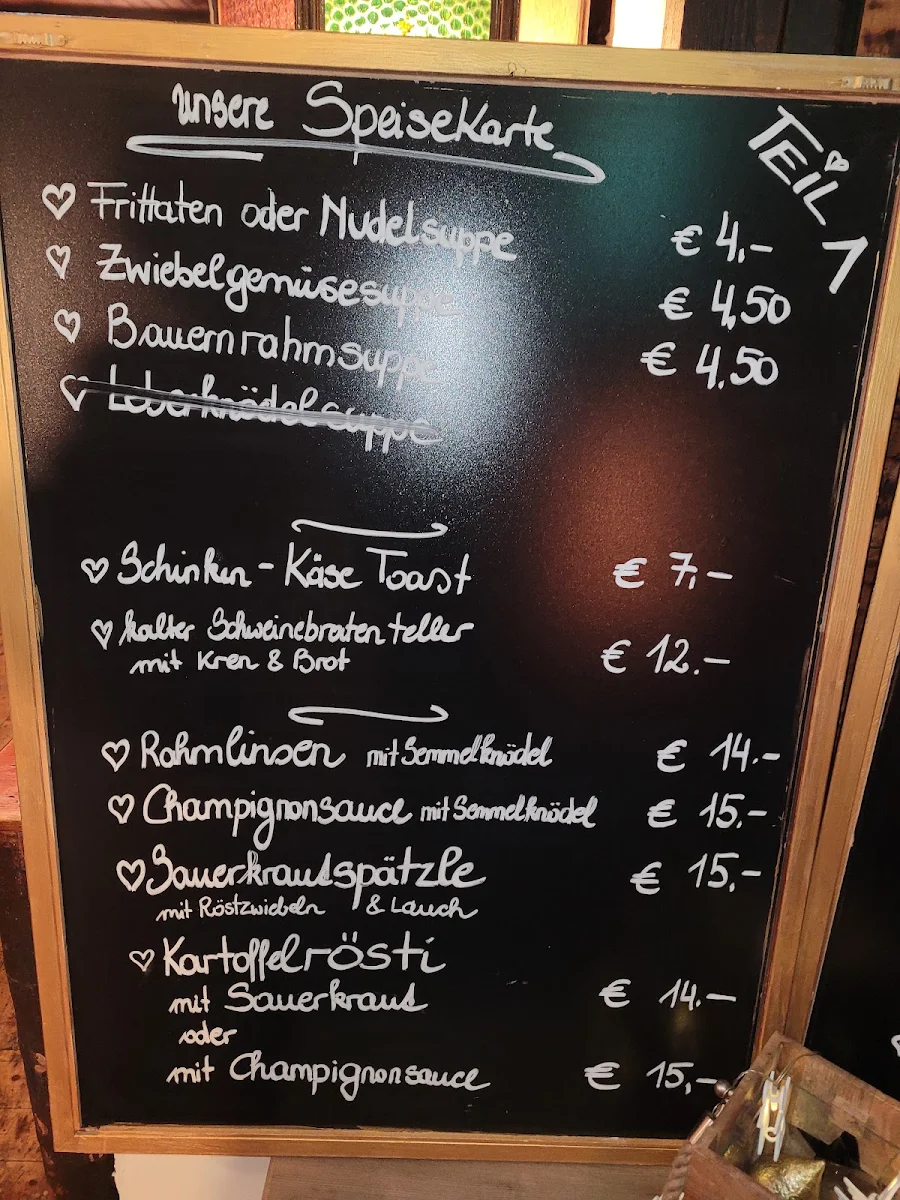 unsere Speisekarte
TEIL 1
Frittaten oder Nudelsuppe € 4,-
Zwiebelgemüsesuppe € 4,50
Bauernrahmsuppe € 4.50
Leberknödelsuppe
Schinken - Käse Toast € 7,-
kalter Schweinebraten teller
mit Kren & Brot € 12.-
Rahmlinsen mit Semmelknödel € 14.-
Champignonsauce mit Semmelknödel € 15.-
Sauerkrautspätzle € 15,-
mit Röstzwiebeln & Lauch
Kartoffelrösti
mit Sauerkraut € 14.-
oder
mit Champignonsauce € 15,-